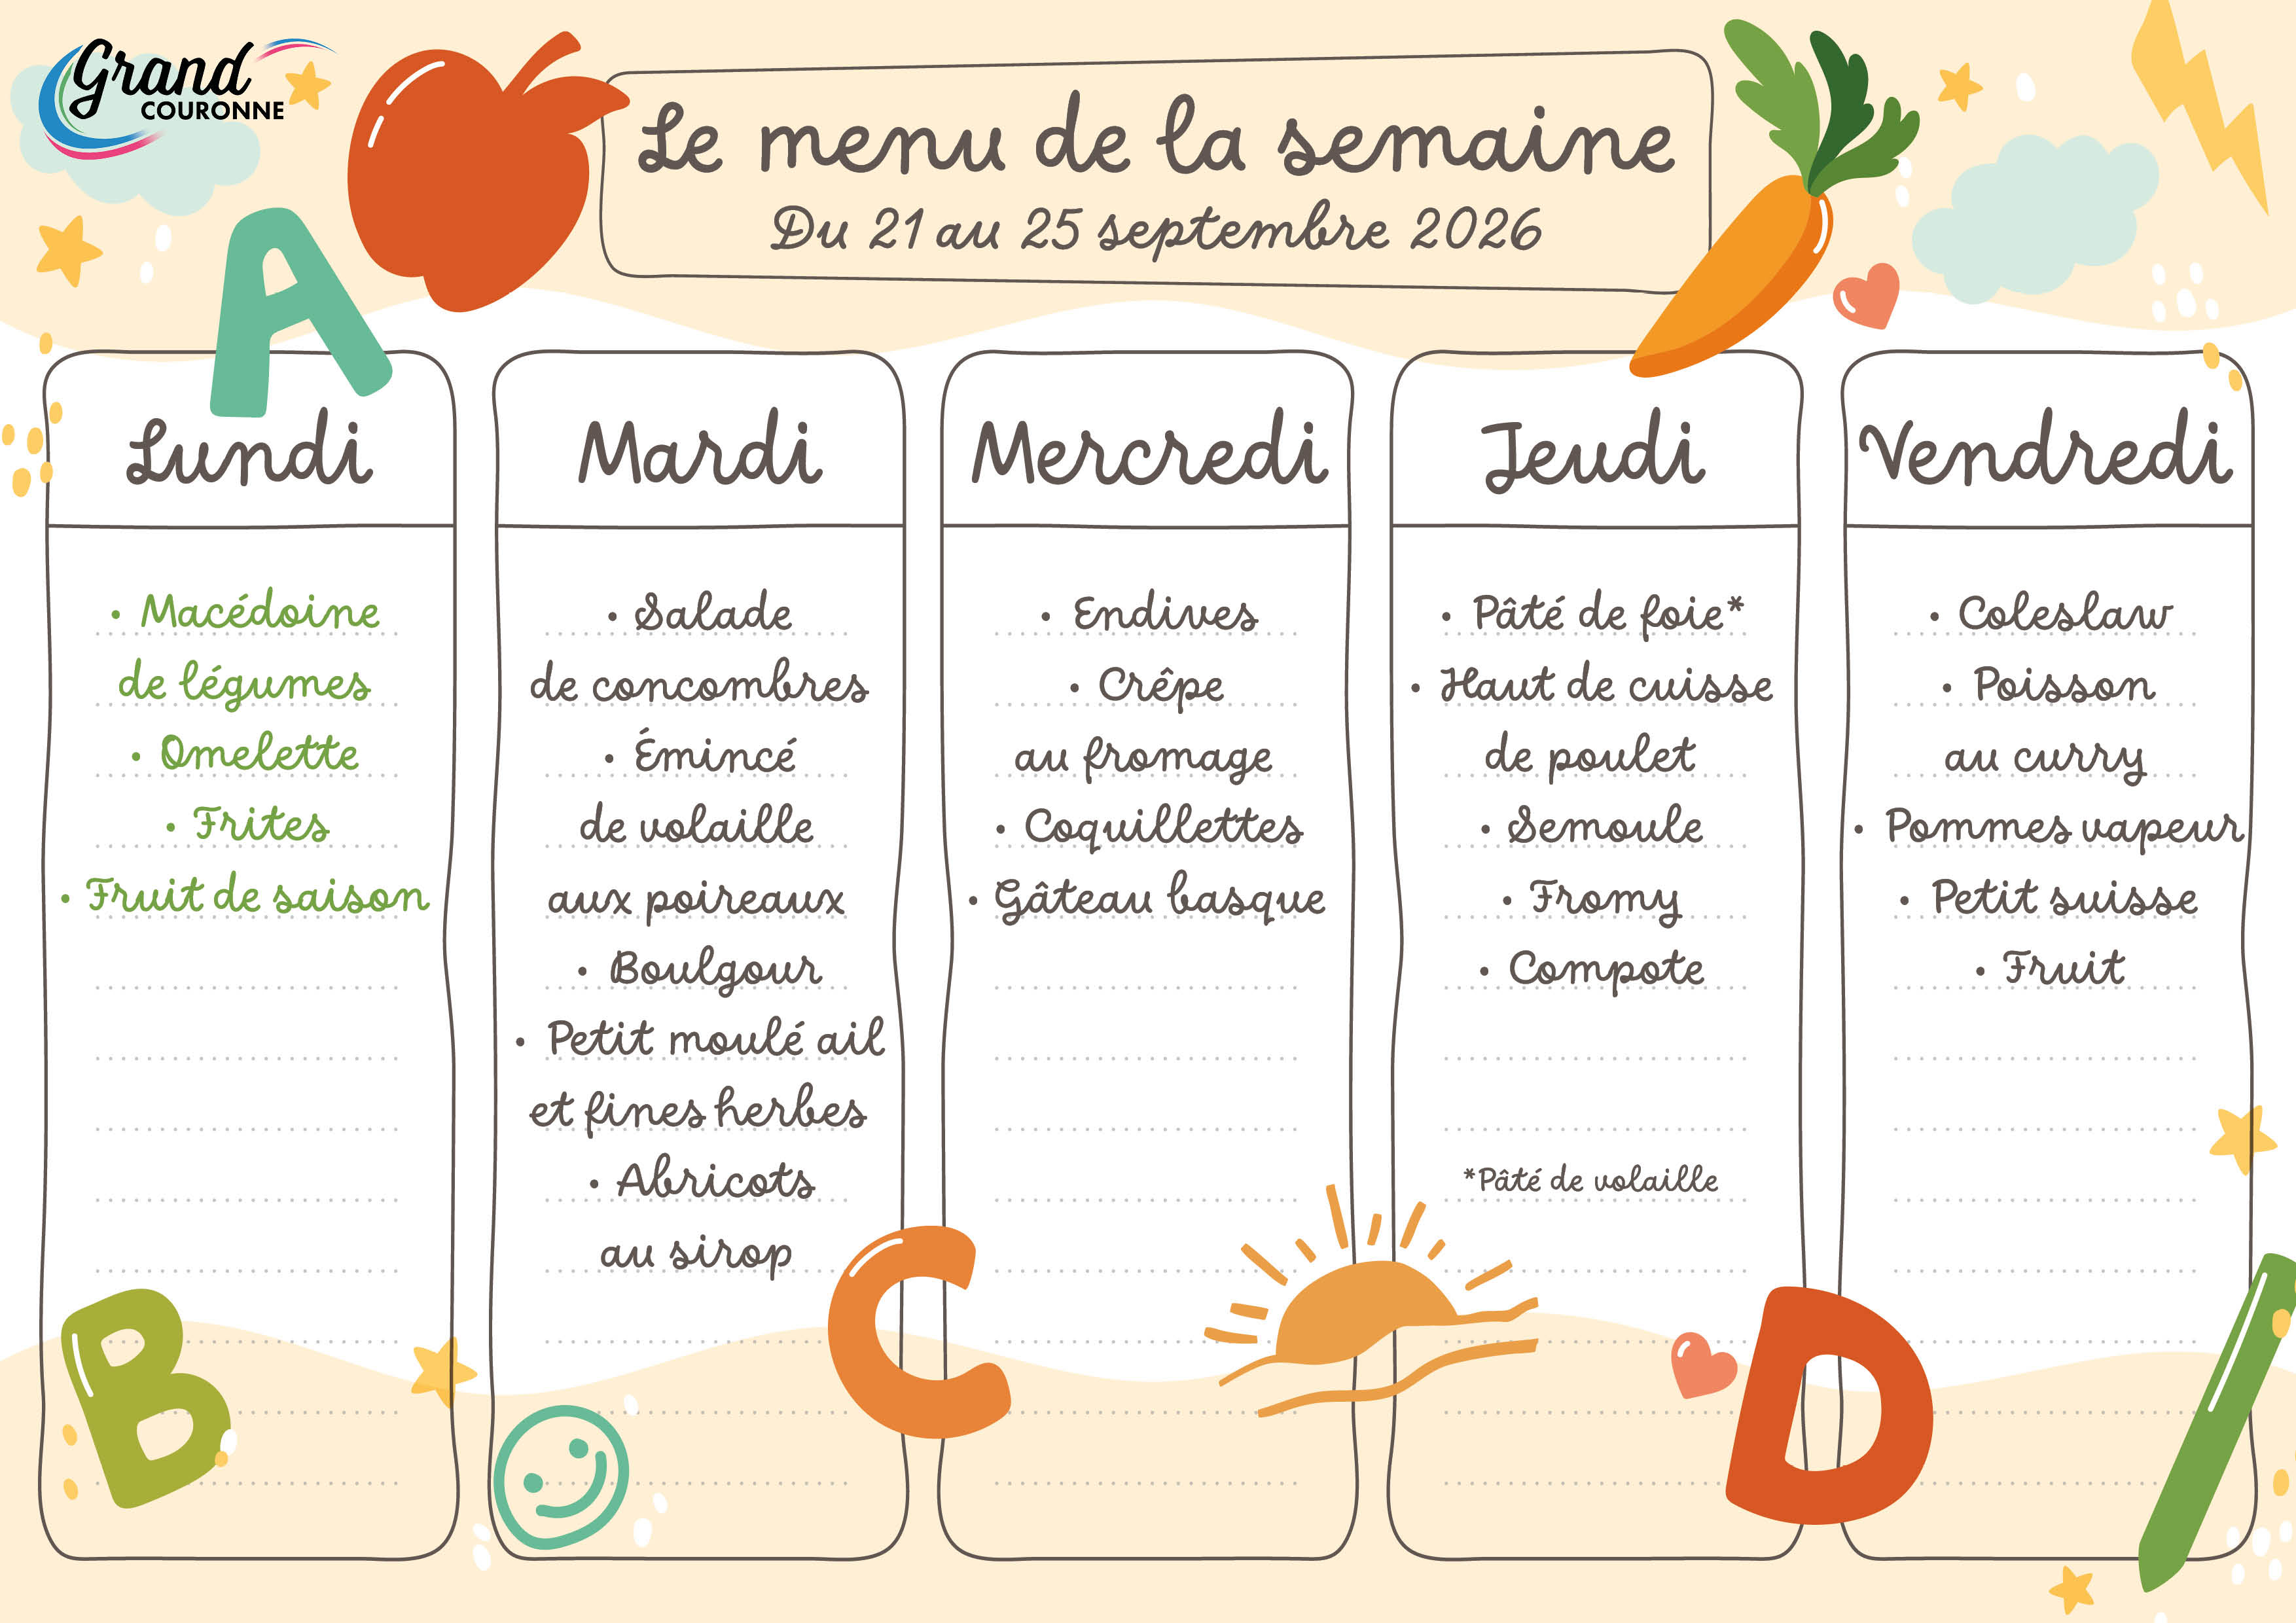 Grand
COURONNE
Le menu de la semaine
Du 21 au 25 septembre 2026
Lundi
• Macédoine
de légumes
• Omelette
• Frites
• Fruit de saison
Mardi
• Salade
de concombres
• Émincé
de volaille
aux poireaux
• Boulgour
• Petit moulé ail
et fines herbes
• Abricots
au sirop
Mercredi
• Endives
• Crêpe
au fromage
• Coquillettes
• Gâteau basque
Jeudi
• Pâté de foie*
• Haut de cuisse
de poulet
• Semoule
• Fromy
• Compote
*Pâté de volaille
Vendredi
• Coleslaw
• Poisson
au curry
• Pommes vapeur
• Petit suisse
• Fruit
A
B
C
D